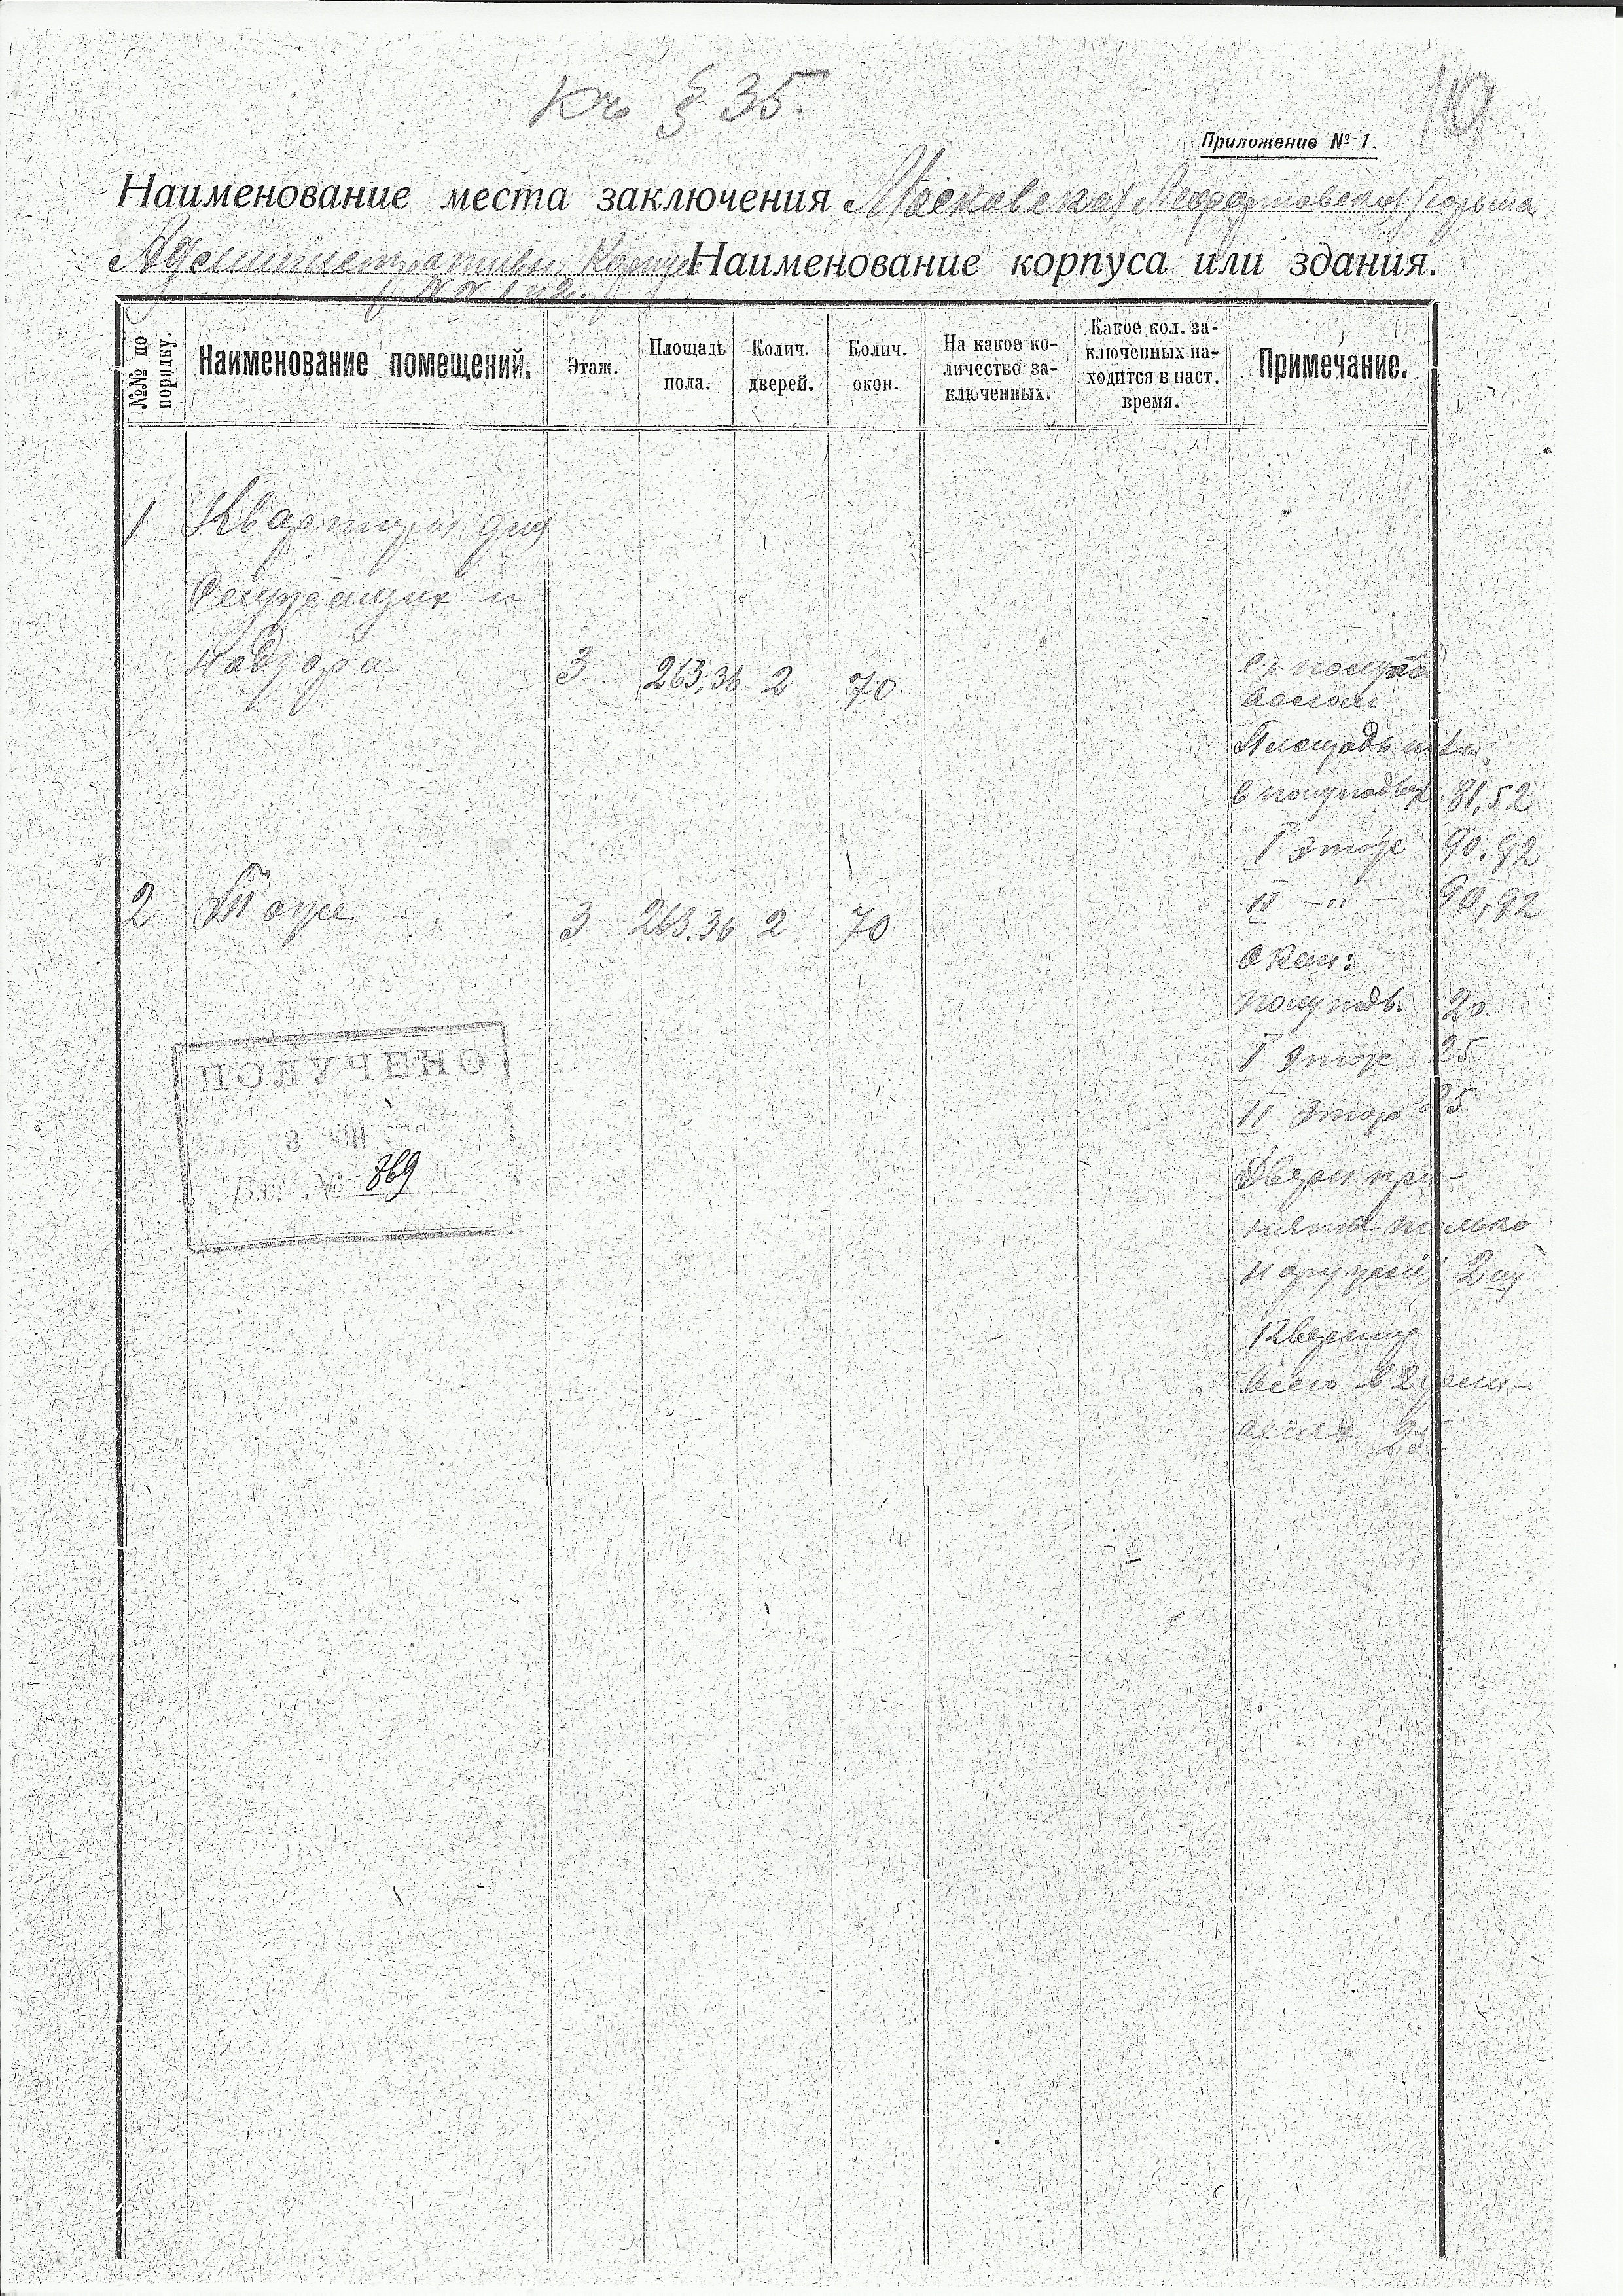 Къ § 35.
Приложение № 1.
Наименование места заключения Московская Лефортовская тюрьма
Административн. Корпус Наименование корпуса или здания.
№№ 1 и 2.
№№ по порядку.
Наименование помещений.
Этаж.
Площадь пола.
Колич. дверей.
Колич. окон.
На какое количество заключенных.
Какое кол. заключенных находится в наст. время.
Примечание.
1 Квартиры для
Служащих и
надзора 3 263,36 2 70
Площадь
в полуподвал 81,52
I этаж 90,92
2 Тоже 3 263.36 2 70
II - " - 90,92
Окон:
полуподв. 20.
I Этаж 25
II Этаж 25
ПОЛУЧЕНО
8
Вх. № 869
Двери при-
няты только
наружные 2
Квартир
всего в 2
25.